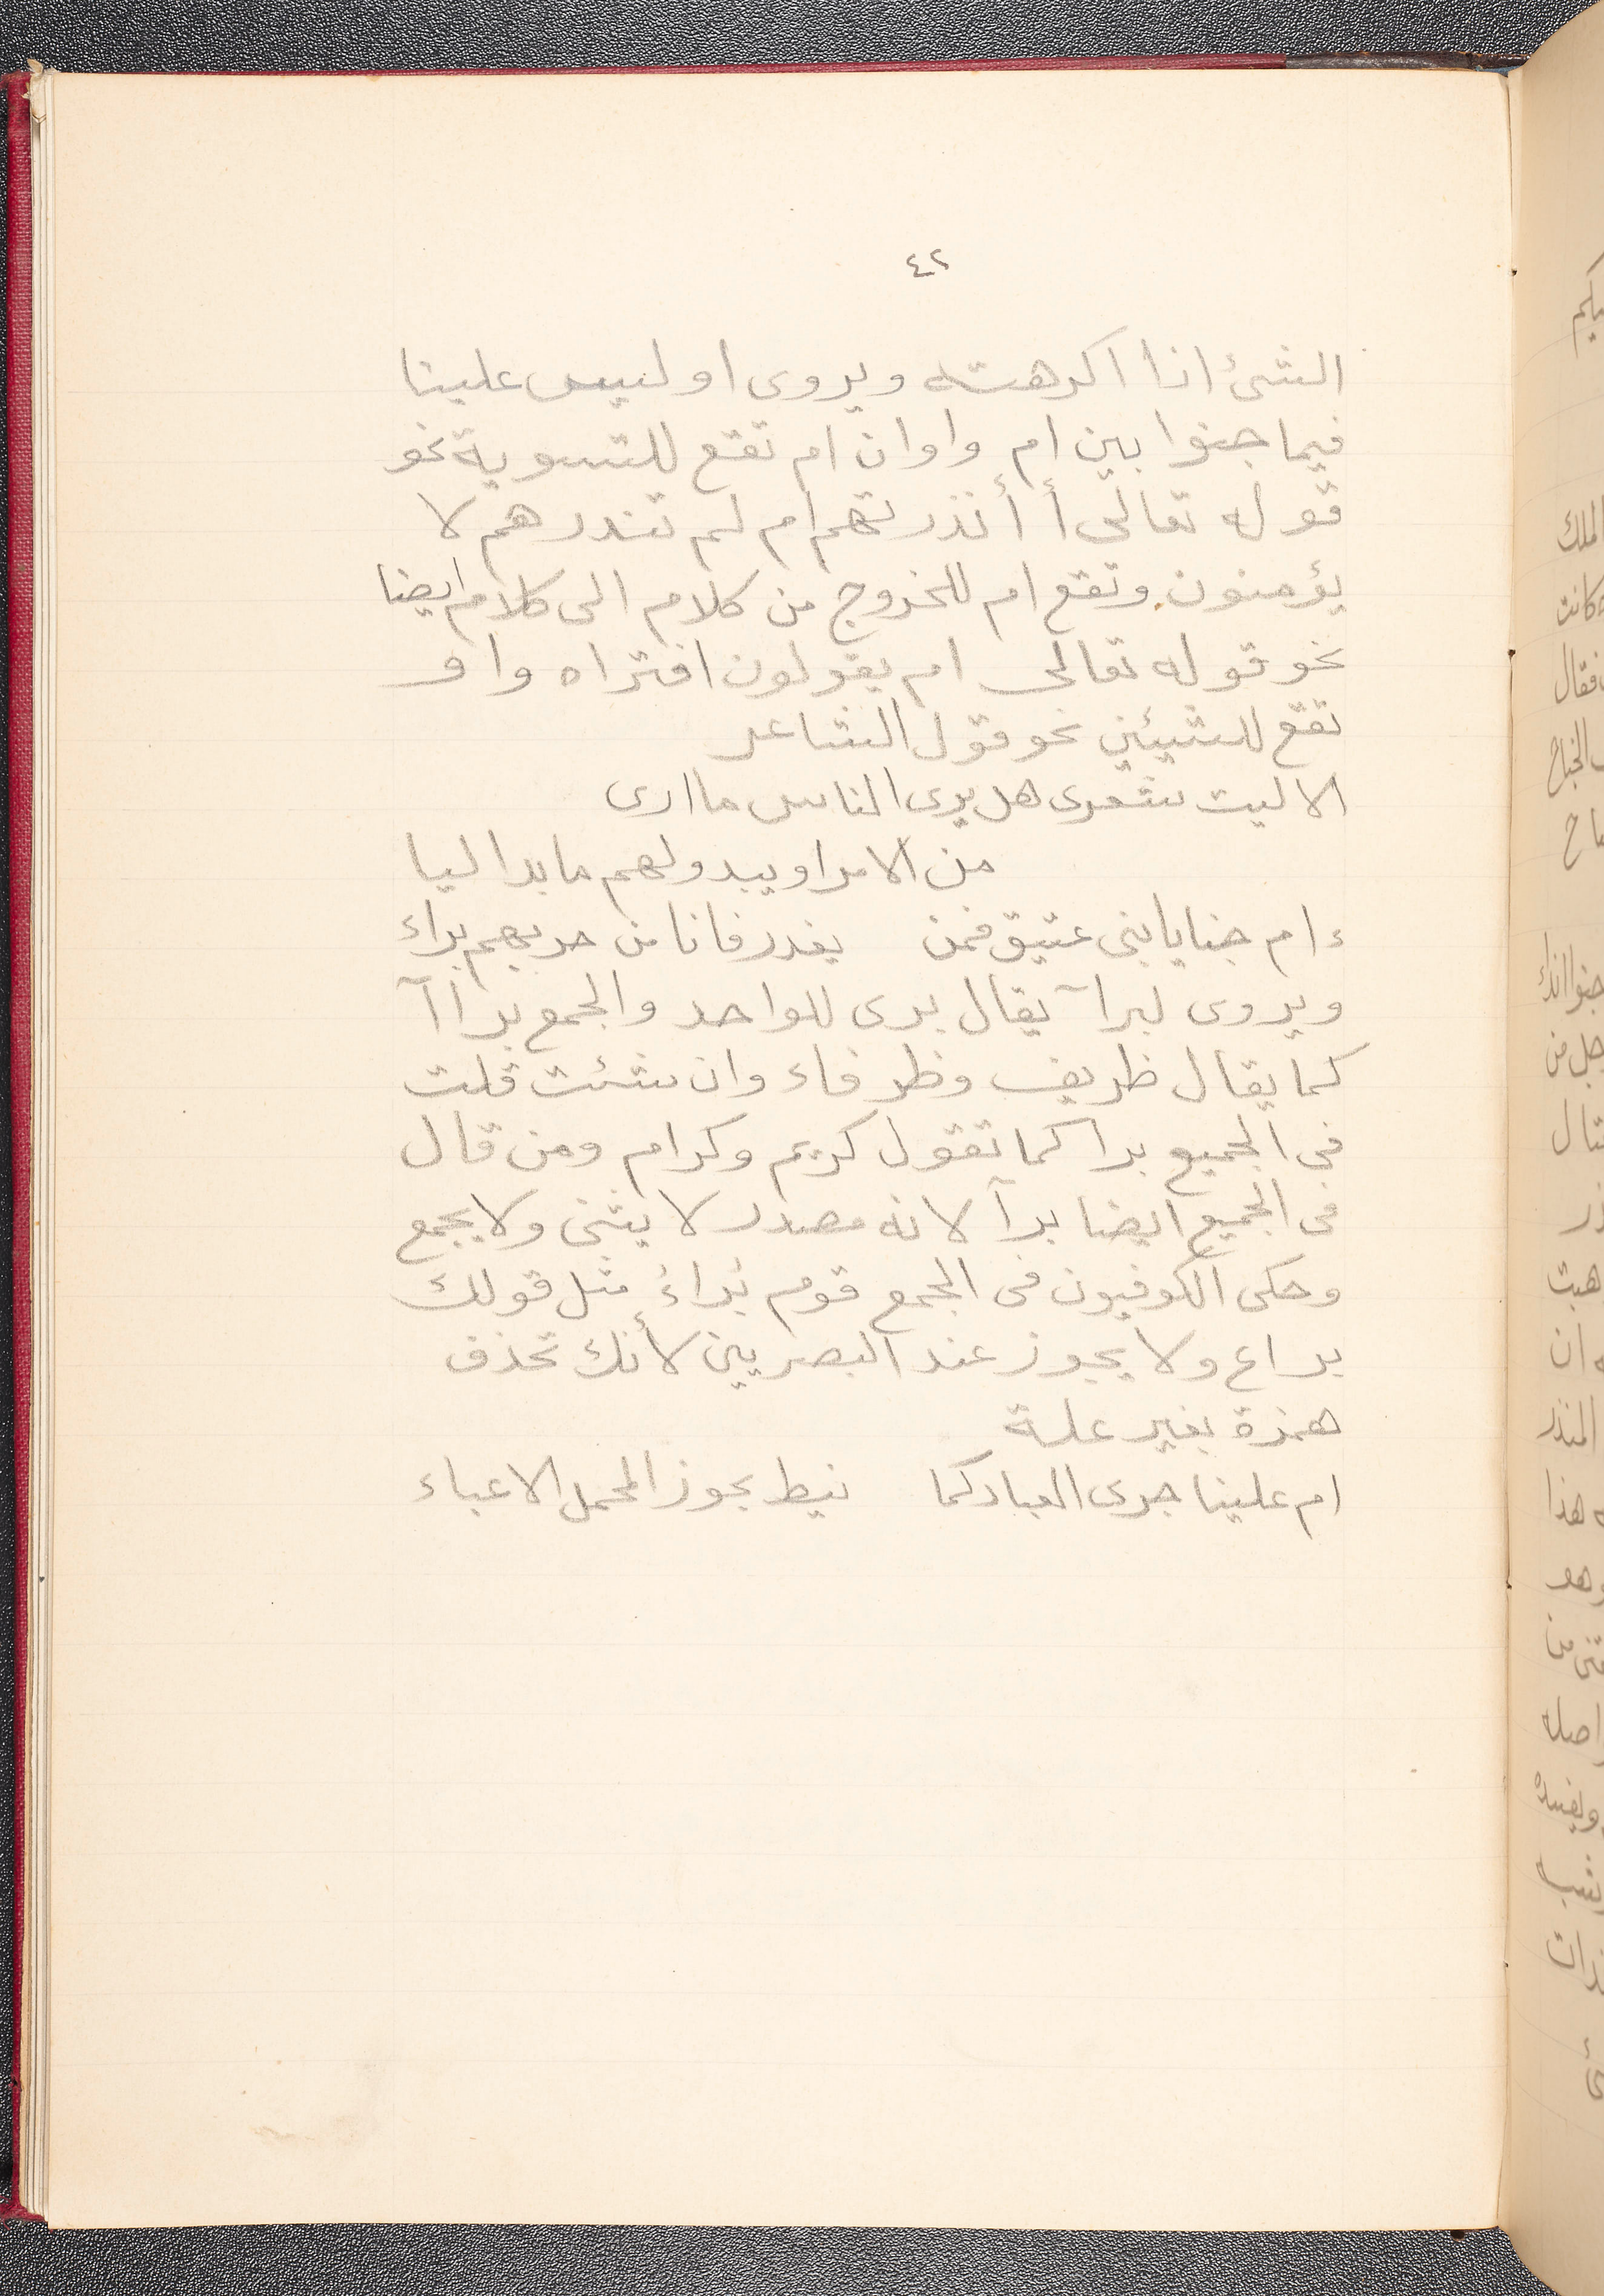 ٤٢
الشئ اذا اكرهته ويروى او ليس علينا
فيما جنوا بين ام واوان ام تقع للتسوية نحو
قوله تعالى أ أنذرتهم ام لم تنذرهم لا
يؤمنون وتقع ام للخروج من كلام الى كلام ايضا
نحو قوله تعالى ام يقولون افتراه واو
تقع للشيئين نحو قول الشاعر
الا ليت شعرى هل يرى الناس ما ارى
من الامر او يبدو لهم ما بدا ليا
ءام جنايا بنى عتيق فمن يغدر فانا من حربهم براء
ويروى لبرآ يقال برى للواحد والجمع براآ
كما يقال ظريف وظرفاء وان شئت قلت
فى الجميع برا كما تقول كريم وكرام ومن قال
فى الجميع ايضا برآ لانه مصدر لا يثنى ولا يجمع
وحكى الكوفيون فى الجمع قوم بُراءُ مثل قولك
براع ولا يجوز عند البصريين لأنك تحذف
همزة بغير علة
ام علينا جرى العباد كما نيط بجوز المحمل الاعباء